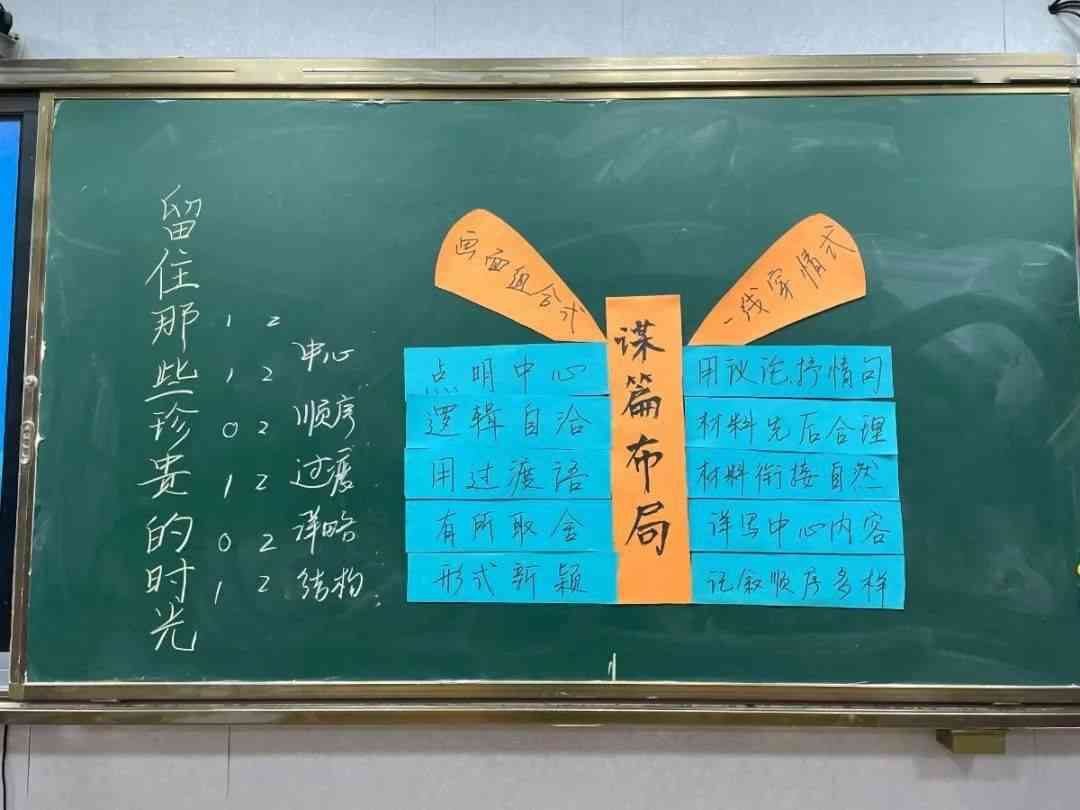 留住那些珍贵的时光
1 2
1 2
0 2
1 2
0 2
1 2
中心
顺序
过渡
详略
结构
画面组合式
一线穿情式
谋篇布局
点明中心
逻辑自洽
用过渡语
有所取舍
形式新颖
用议论、抒情句
材料先后合理
材料衔接自然
详写中心内容
记叙顺序多样